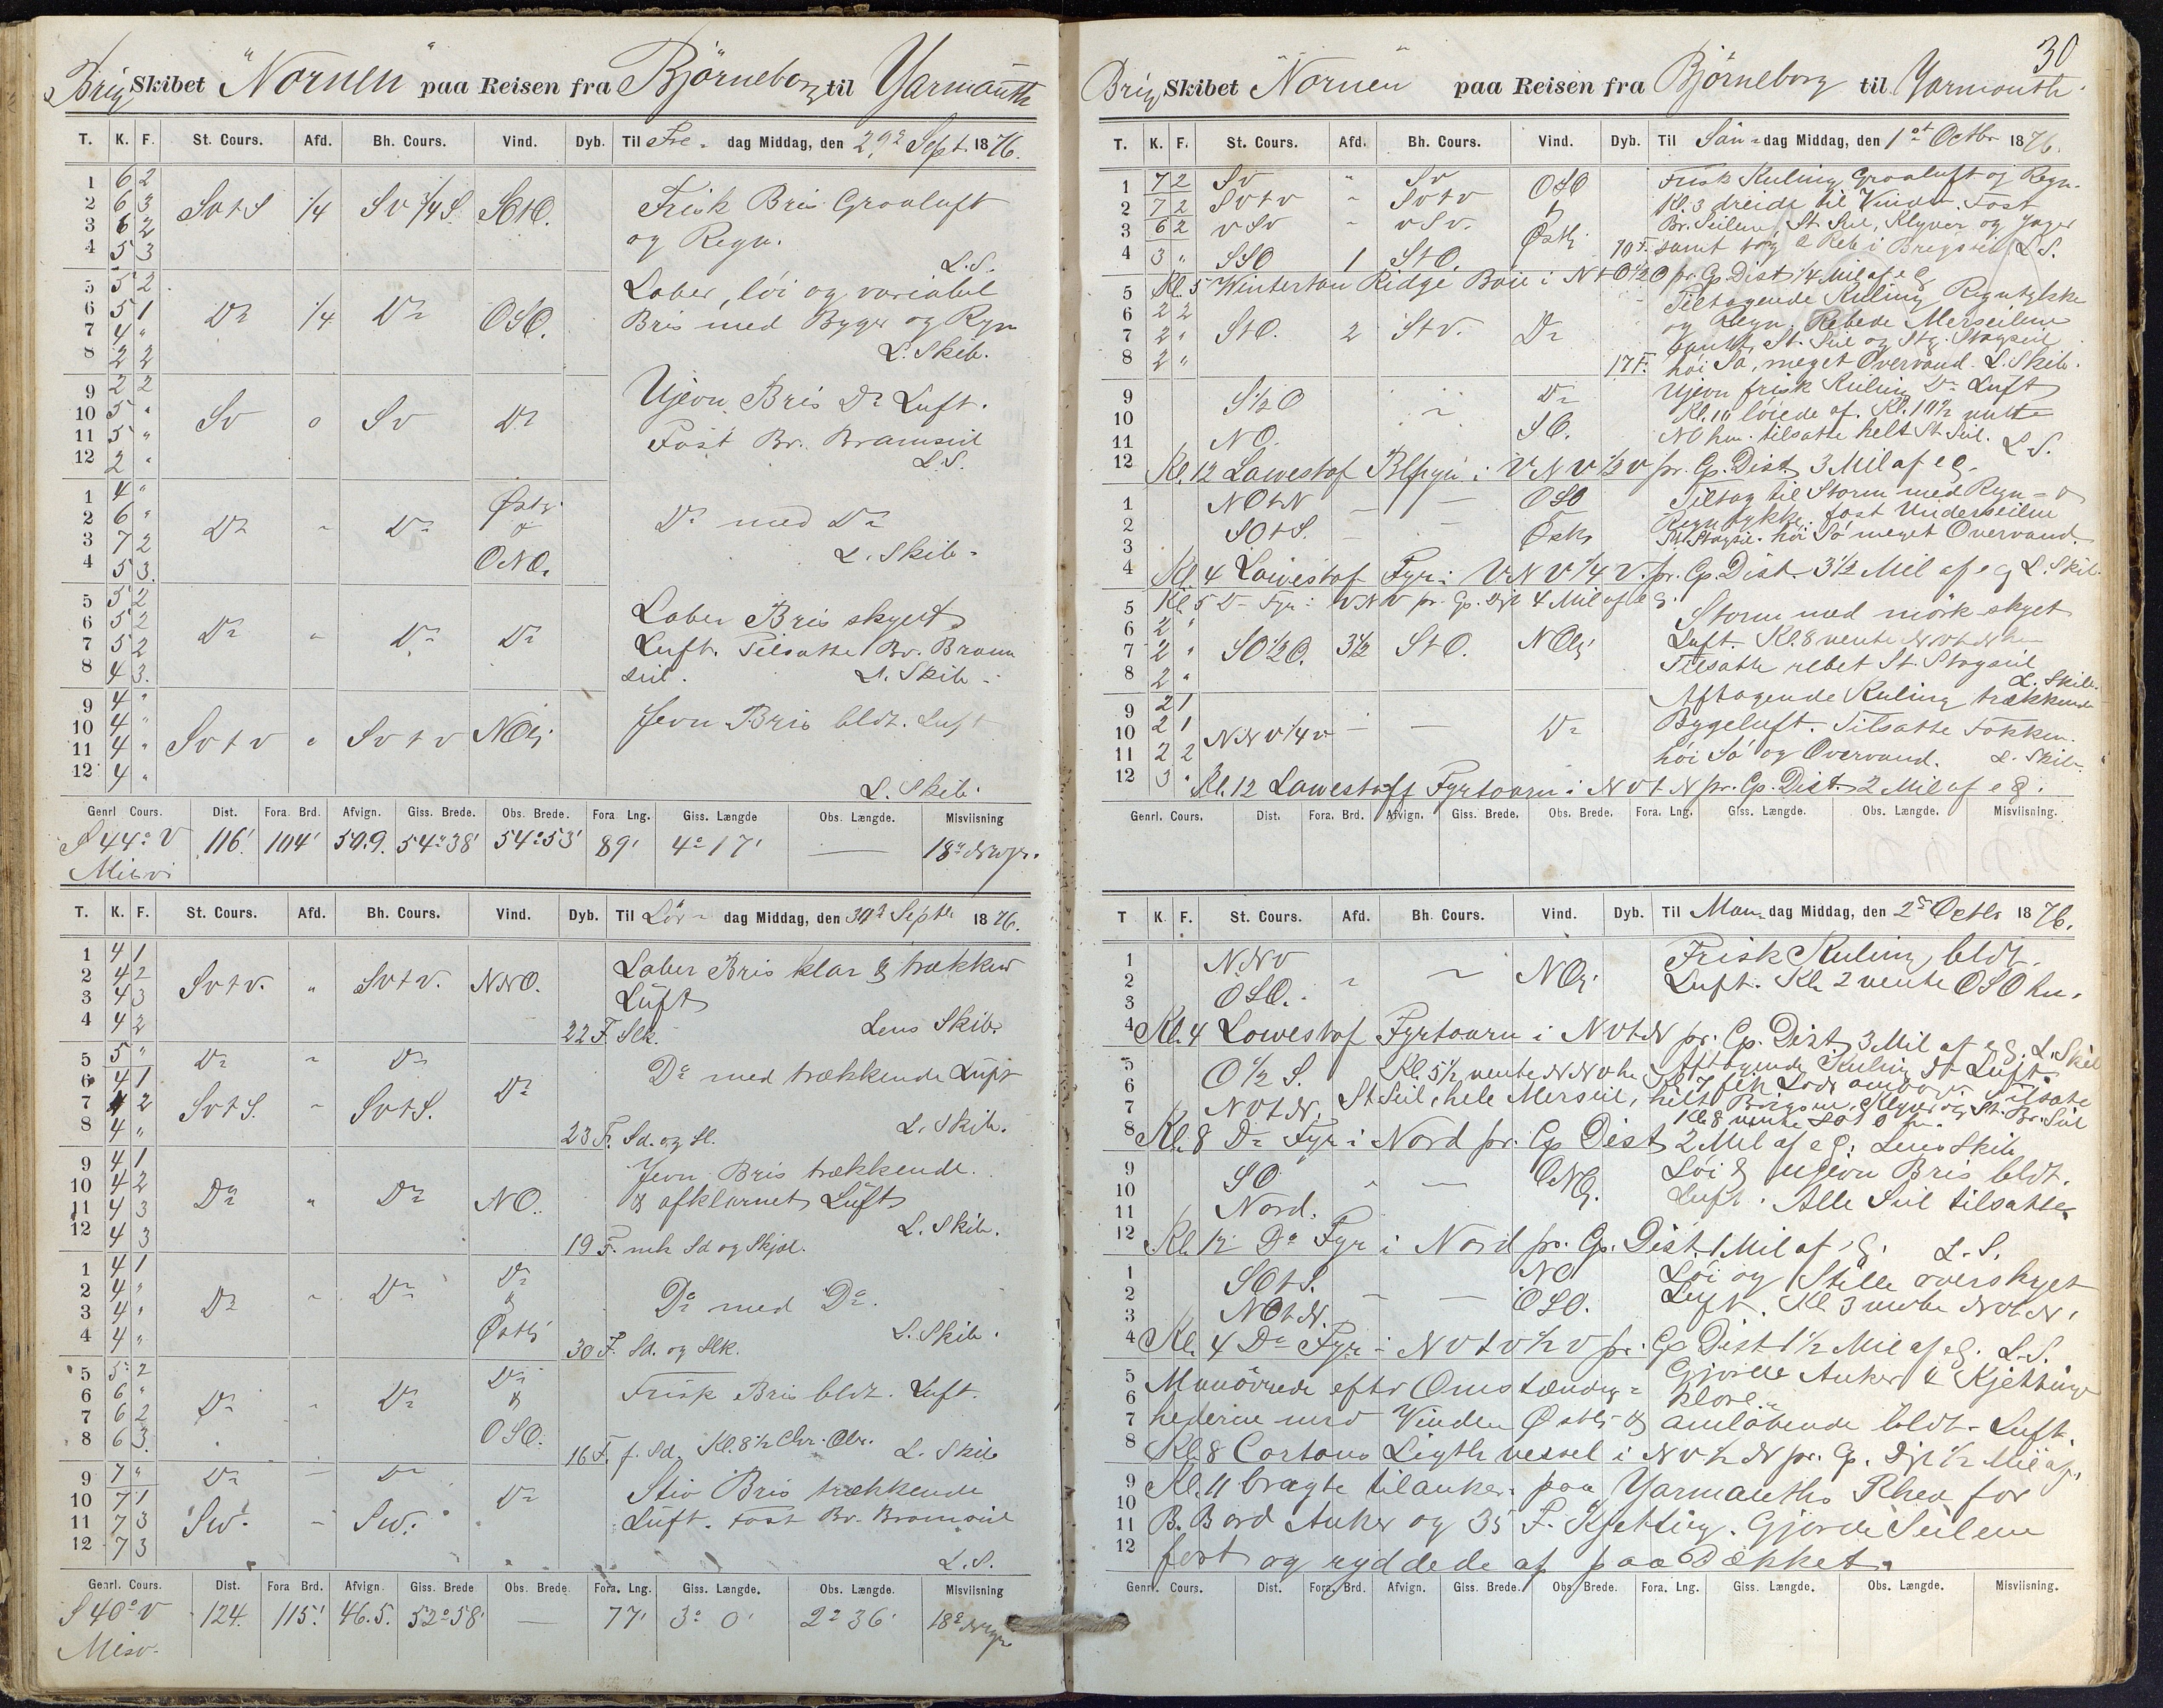 Brig Skibet "Nornen" paa Reisen fra Björneborg til Yarmouth
T. K. F. St. Cours. Afd. Bh. Cours. Vind. Dyb. Til Fre- dag Middag, den 29de Sept. 1876.
1 6 2
2 6 3 SvtS 1/4 Sv 3/4 S. SOtO. Frisk Bris Graaluft
3 6 2 og Regn.
4 5 3 L.S.
5 5 2 Laber, löi og variabel
6 5 1 Do 1/4 Do OSO. Bris med Byger og Regn
7 4 "
8 2 2 L. Skib.
9 2 2 Ujevn Bris Do Luft.
10 5 " Sv o Sv Do
11 5 " Fast Br. Bramseil
12 2 " L.S.
1 4 " Østlig
2 6 " Do " Do & Do med Do
3 7 2 ONO. L. Skib.
4 5 3.
5 5 2 Laber Bris skyet
6 5 2 Do " Do Do Luft. Tilsatte Br. Bram
7 5 2 seil. L. Skib.
8 4 3.
9 4 " Jevn Bris bldt. Luft
10 4 " Svtv " Svtv NOlig
11 4 "
12 4 " L. Skib.
Genrl Cours. Dist. Fora. Brd. Afvign. Giss. Brede. Obs. Brede. Fora Lng. Giss. Længde Obs. Længde. Misviisning
S 44° V 116' 104' 50.9. 54°38' 54°53' 89' 4°17' — 18°
Misv
T. K. F. St. Cours. Afd. Bh. Cours. Vind. Dyb. Til Lör- dag Middag, den 30te Septr 1876.
1 4 1 Laber Bris klar & trækken
2 4 2 Svtv. " Svtv. NNO. Luft
3 4 3
4 4 2 22 F. Slk. Lens Skib.
5 5 " Do " Do
6 4 1 Do Do med trækkende Luft
7 4 2 SvtS. " SvtS.
8 4 " 23 F. Sd. og Sl. L. Skib.
9 4 1 Jevn Bris trækkende
10 4 2 Do " Do NO. & afklarnet Luft
11 4 3 L. Skib.
12 4 3 19 F. mk Sd og Skjæl.
1 4 1 Do
2 4 " Do " Do & Do med Do.
3 4 " Østlig L. Skib.
4 4 " 30 F. Sd. og Slk.
5 5 2 Do
6 6 " Do " Do & Frisk Bris bldt. Luft.
7 6 2
8 6 3. OSO. 16 F. f. Sd. Kl. 8 1/2 Chr. Obs. L. Skib
9 7 " Do — Do Stiv Bris trækkende
10 7 1 Do Luft. Fast Br. Bramseil
11 7 3 Sv. " Sv.
12 7 3 L.S.
Genrl. Cours. Dist. Fora Brd. Afvign. Giss. Brede Obs. Brede. Fora. Lng. Giss. Længde. Obs. Længde. Misviisning
S 40° V 124. 115' 46.5. 52°58' — 77' 3° 0' 2° 36' 18°
Misv.
30
Brig Skibet Nornen paa Reisen fra Björneborg til Yarmouth
T. K. F. St. Cours. Afd. Bh. Cours. Vind. Dyb. Til Sön- dag Middag, den 1ste Octbr 1876.
1 7 2 Sv " Sv OSO Frisk Kuling Graaluft og Regn.
2 7 2 Svtv " Svtv & Kl. 3 dreide til Vinden. Fast
3 6 2 vSv " vSv. Østlig Br. Seilene, St. Seil, Klyver og Jager
4 3 " SSO 1 StO. 10 F. samt tog 2 Reb i Brigseil L.S.
5 Kl. 5 Wintertan Ridge Böie i NtO 1/2 O pr. Cp. Dist 1/4 Mil af e G
6 2 2 Tiltagende Kuling Regntykke
7 2 " StO. 2 Stv. Do og Regn. Rebede Merseilene
samt St. Seil og Stg. Stagseil
8 2 " 17 F. höi Sö, meget Overvand L. Skib.
9 S 1/2 O " Do Ujevn frisk Kuling Do Luft
10 Kl. 10 löiede af. Kl. 10 1/2 vente
11 NO. SO. NO hen. tilsatte helt St. Seil. L.S.
12 Kl. 12 Lawestof Blfyr i VNV 1/2 v pr. Cp. Dist 3 Mil af e G.
1 NOtN — — OSO Tiltog til Storm med Regn- &
2 Regntykke. fast Underseilene
3 SOtS. — — Østlig St. Stagseil. höi Sö meget Overvand.
4 Kl. 4 Lawestof Fyr i VNV 1/4 V. pr. Cp. Dist. 3 1/2 Mil af e G L. Skib.
5 Kl. 5 Do Fyr i VNV pr. Cp. Dist 4 Mil af e G.
6 2 " Storm med mörk skyet
7 2 " SO 1/2 O. 3 1/2 StO. NOlig Luft. Kl. 8 vente NVtN hen
8 2 " Tilsatte rebet St. Stagseil L. Skib.
9 2 1 Aftagende Kuling trækkende
10 2 1 NNV 1/4 v — — Do Bygeluft. Tilsatte Fokken.
11 2 2 höi Sö og Overvand. L. Skib.
12 3 " Kl. 12 Lawestoff Fyrtaarn i NVtN pr. Cp. Dist. 2 Mil af e G.
Genrl. Cours. Dist. Fora. Brd. Afvign. Giss. Brede. Obs. Brede. Fora. Lng. Giss. Længde. Obs. Længde. Misviisning.
T K. F. St. Cours. Afd. Bh. Cours. Vind. Dyb. Til Man- dag Middag, den 2den Octbr 1876.
1 NNV Frisk Kuling bldt.
2 " ~ NOlig Luft. Kl. 2 vente OSO hen.
3 OSO.
4 Kl. 4 Lowestof Fyrtaarn i NVtN pr. Cp. Dist 3 Mil af e G. L. Skib
5 O 1/2 S. Kl. 5 1/2 vente NNV hen Aftagende Kuling Do Luft
6 Kl. 7 fik Lods ombord Tilsatte
7 NVtN. St Seil, hele Merseil, helt Brigseil, Klyver og St. Br. Seil
Kl. 8 vente SO
8 Kl. 8 Do Fyr i Nord pr. Cp Dist 2 Mil af e G. Lens Skib
9 SO " — ONOlig. Löi & ujevn Bris bldt.
10 Luft. Alle Seil tilsatte
11 Nord.
12 Kl. 12 Do Fyr i Nord pr. Cp. Dist 1 Mil af e G. L.S.
1 SOtS. NO Löi og Stille overskyet
2 — — Luft. Kl 3 vente NOtN.
3 NOtN. OSO.
4 Kl. 4 Do Fyr i NVtV 1/2 V pr. Cp Dist 1 1/2 Mil af e G. L.S.
5 Manövrede efter Omstændig- Gjorde Anker & Kjetting
6 klare.
7 hederne med Vinden Østlig & omlöbende bldt. Luft.
8 Kl. 8 Cortons Ligth vessel i NV 1/2 N pr. Cp. Dist 1/2 Mil af
9 Kl. 11 bragte tilankers paa Yarmouths Rhed for
10
11 B. Bord Anker og 35 F. Kjetting. Gjorde Seilene
12 fast og ryddede af paa Dækket.
Genrl. Cours. Dist. Fora. Brd. Afvign. Giss. Brede. Obs. Brede. Fora. Lng. Giss. Længde. Obs. Længde. Misviisning.